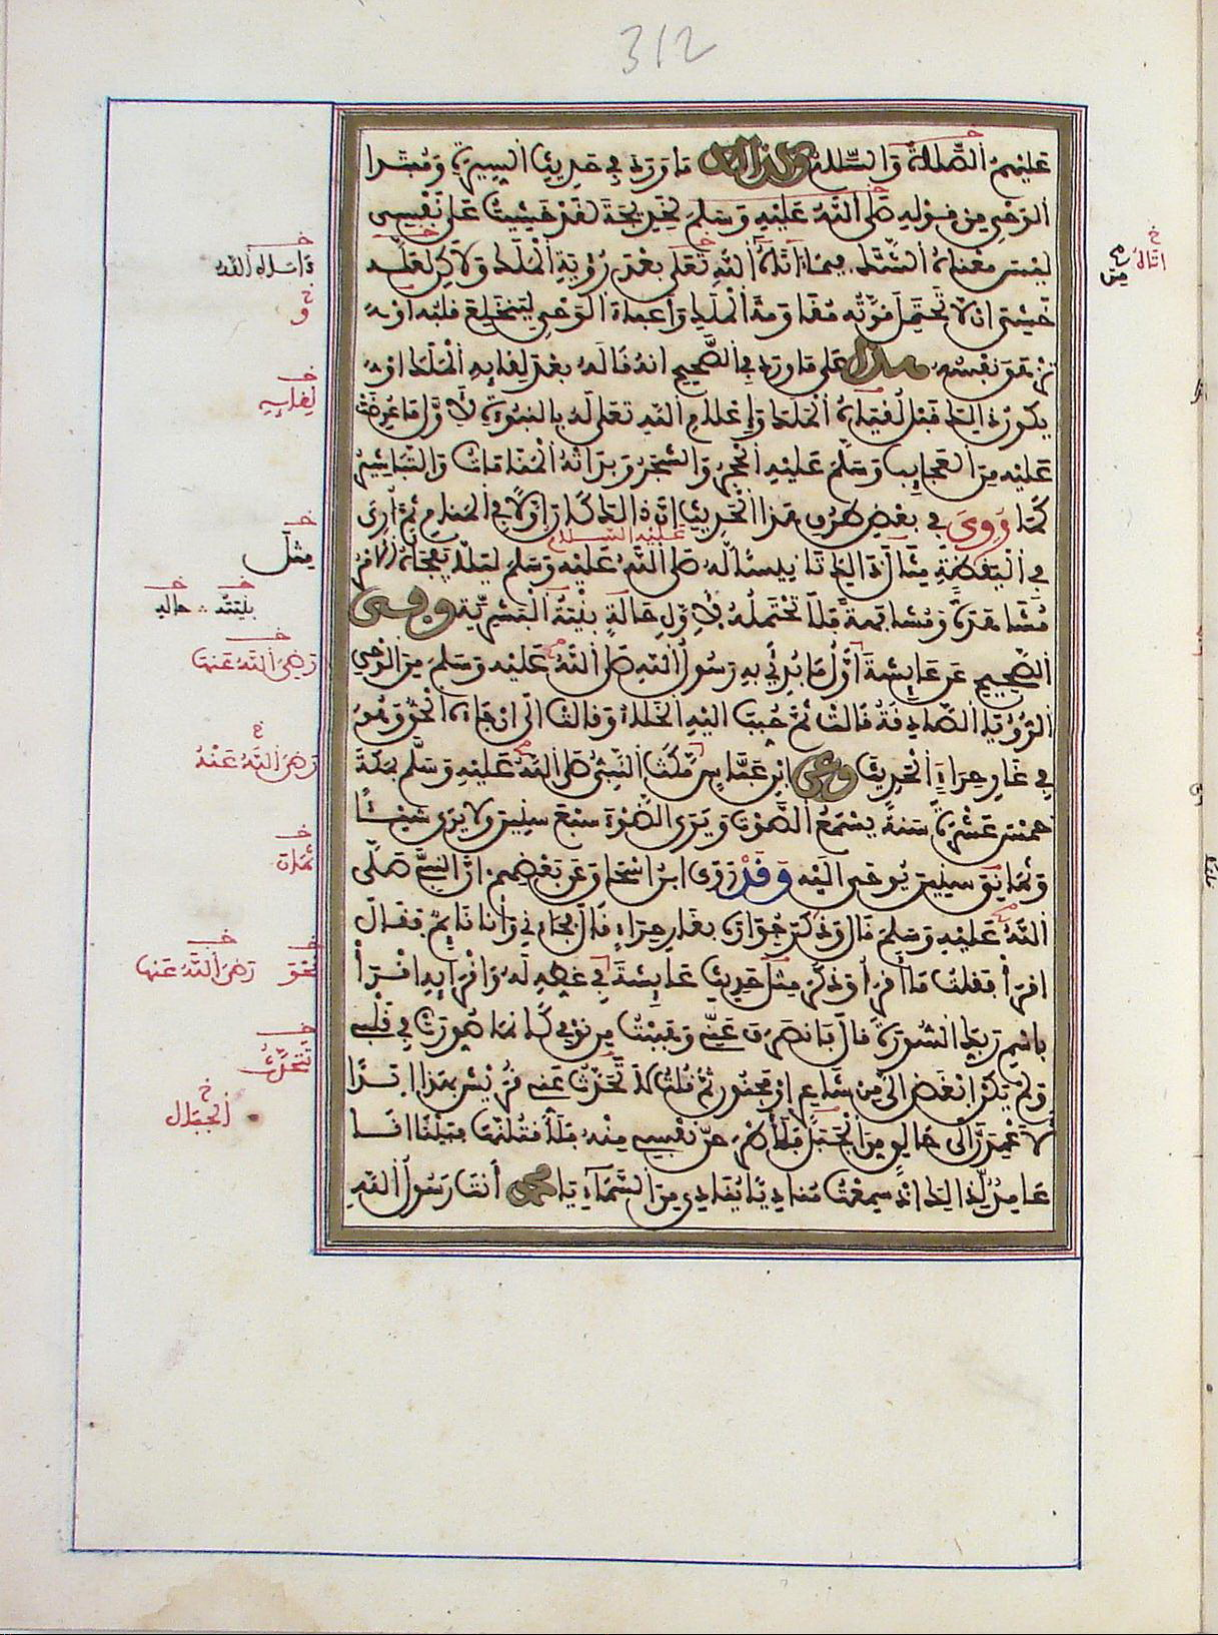 312
عليهم الصلاة والسلام وكذلك ما ورد في حديث السيرة ومبتدا
الوحي من قوله صلى الله عليه وسلم لخديجة لقد خشيت على نفسي
ليس معناه الشك فيما آتاه الله تعالى بعد رؤية الملك ولكن لعله
خشي ان لا تحتمل قوته مقاومة الملك وأعباء الوحي لينخلع قلبه او
تزهق نفسه هذا على ما ورد في الصحيح انه قاله بعد لقايه الملك او
يكون ذلك قبل لقياه الملك وإعلام الله تعالى له بالنبوة لأول ما عرضت
عليه من العجايب وسلم عليه الحجر والشجر وبدأته المنامات والتباشير
كما روي في بعض طرق هذا الحديث ان ذلك كان اولا في المنام ثم أري
عليه السلام
في اليقظة مثال ذلك تانيسا له صلى الله عليه وسلم ليلا يفجأه الامر
مشاهدة ومشافهة فلا تحتمله لأول حالة بنية البشرية وفي
الصحيح عن عايشة أول ما بدئ به رسول الله صلى الله عليه وسلم من الوحي
الرؤيا الصادقة قالت ثم حبب اليه الخلاء وقالت الى ان جاءه الحق وهو
في غار حراء الحديث وعن ابن عباس مكث النبي صلى الله عليه وسلم بمكة
خمس عشرة سنة يسمع الصوت ويرى الضوء سبع سنين ولا يرى شيئا
وثماني سنين يوحى اليه وقد روى ابن اسحاق عن بعضهم ان النبي صلى
الله عليه وسلم قال وذكر جواره بغار حراء قال فجاءني وأنا نايم فقال
اقرأ فقلت ما أقرأ وذكر مثل حديث عايشة في غطه له واقرايه اقرأ
باسم ربك السورة قال فانصرف عني وهببت من نومي كأنما صورت في قلبي
ولم يكن ابغض الي من شاعر او مجنون ثم قلت لا تحدث عني قريش بهذا ابدا
لأعمدن الى حالق من الجبل فلأطرحن نفسي منه فلأقتلنها فبينا انا
عامد لذلك اذ سمعت مناديا ينادي من السماء يا محمد أنت رسول الله
اتاه
من
خ
و
لقايه
مثل
بنيته
رضي الله عنها
رضي الله عنه
ثمان
نحو
رضي الله عنها
تتحدث
الجبال